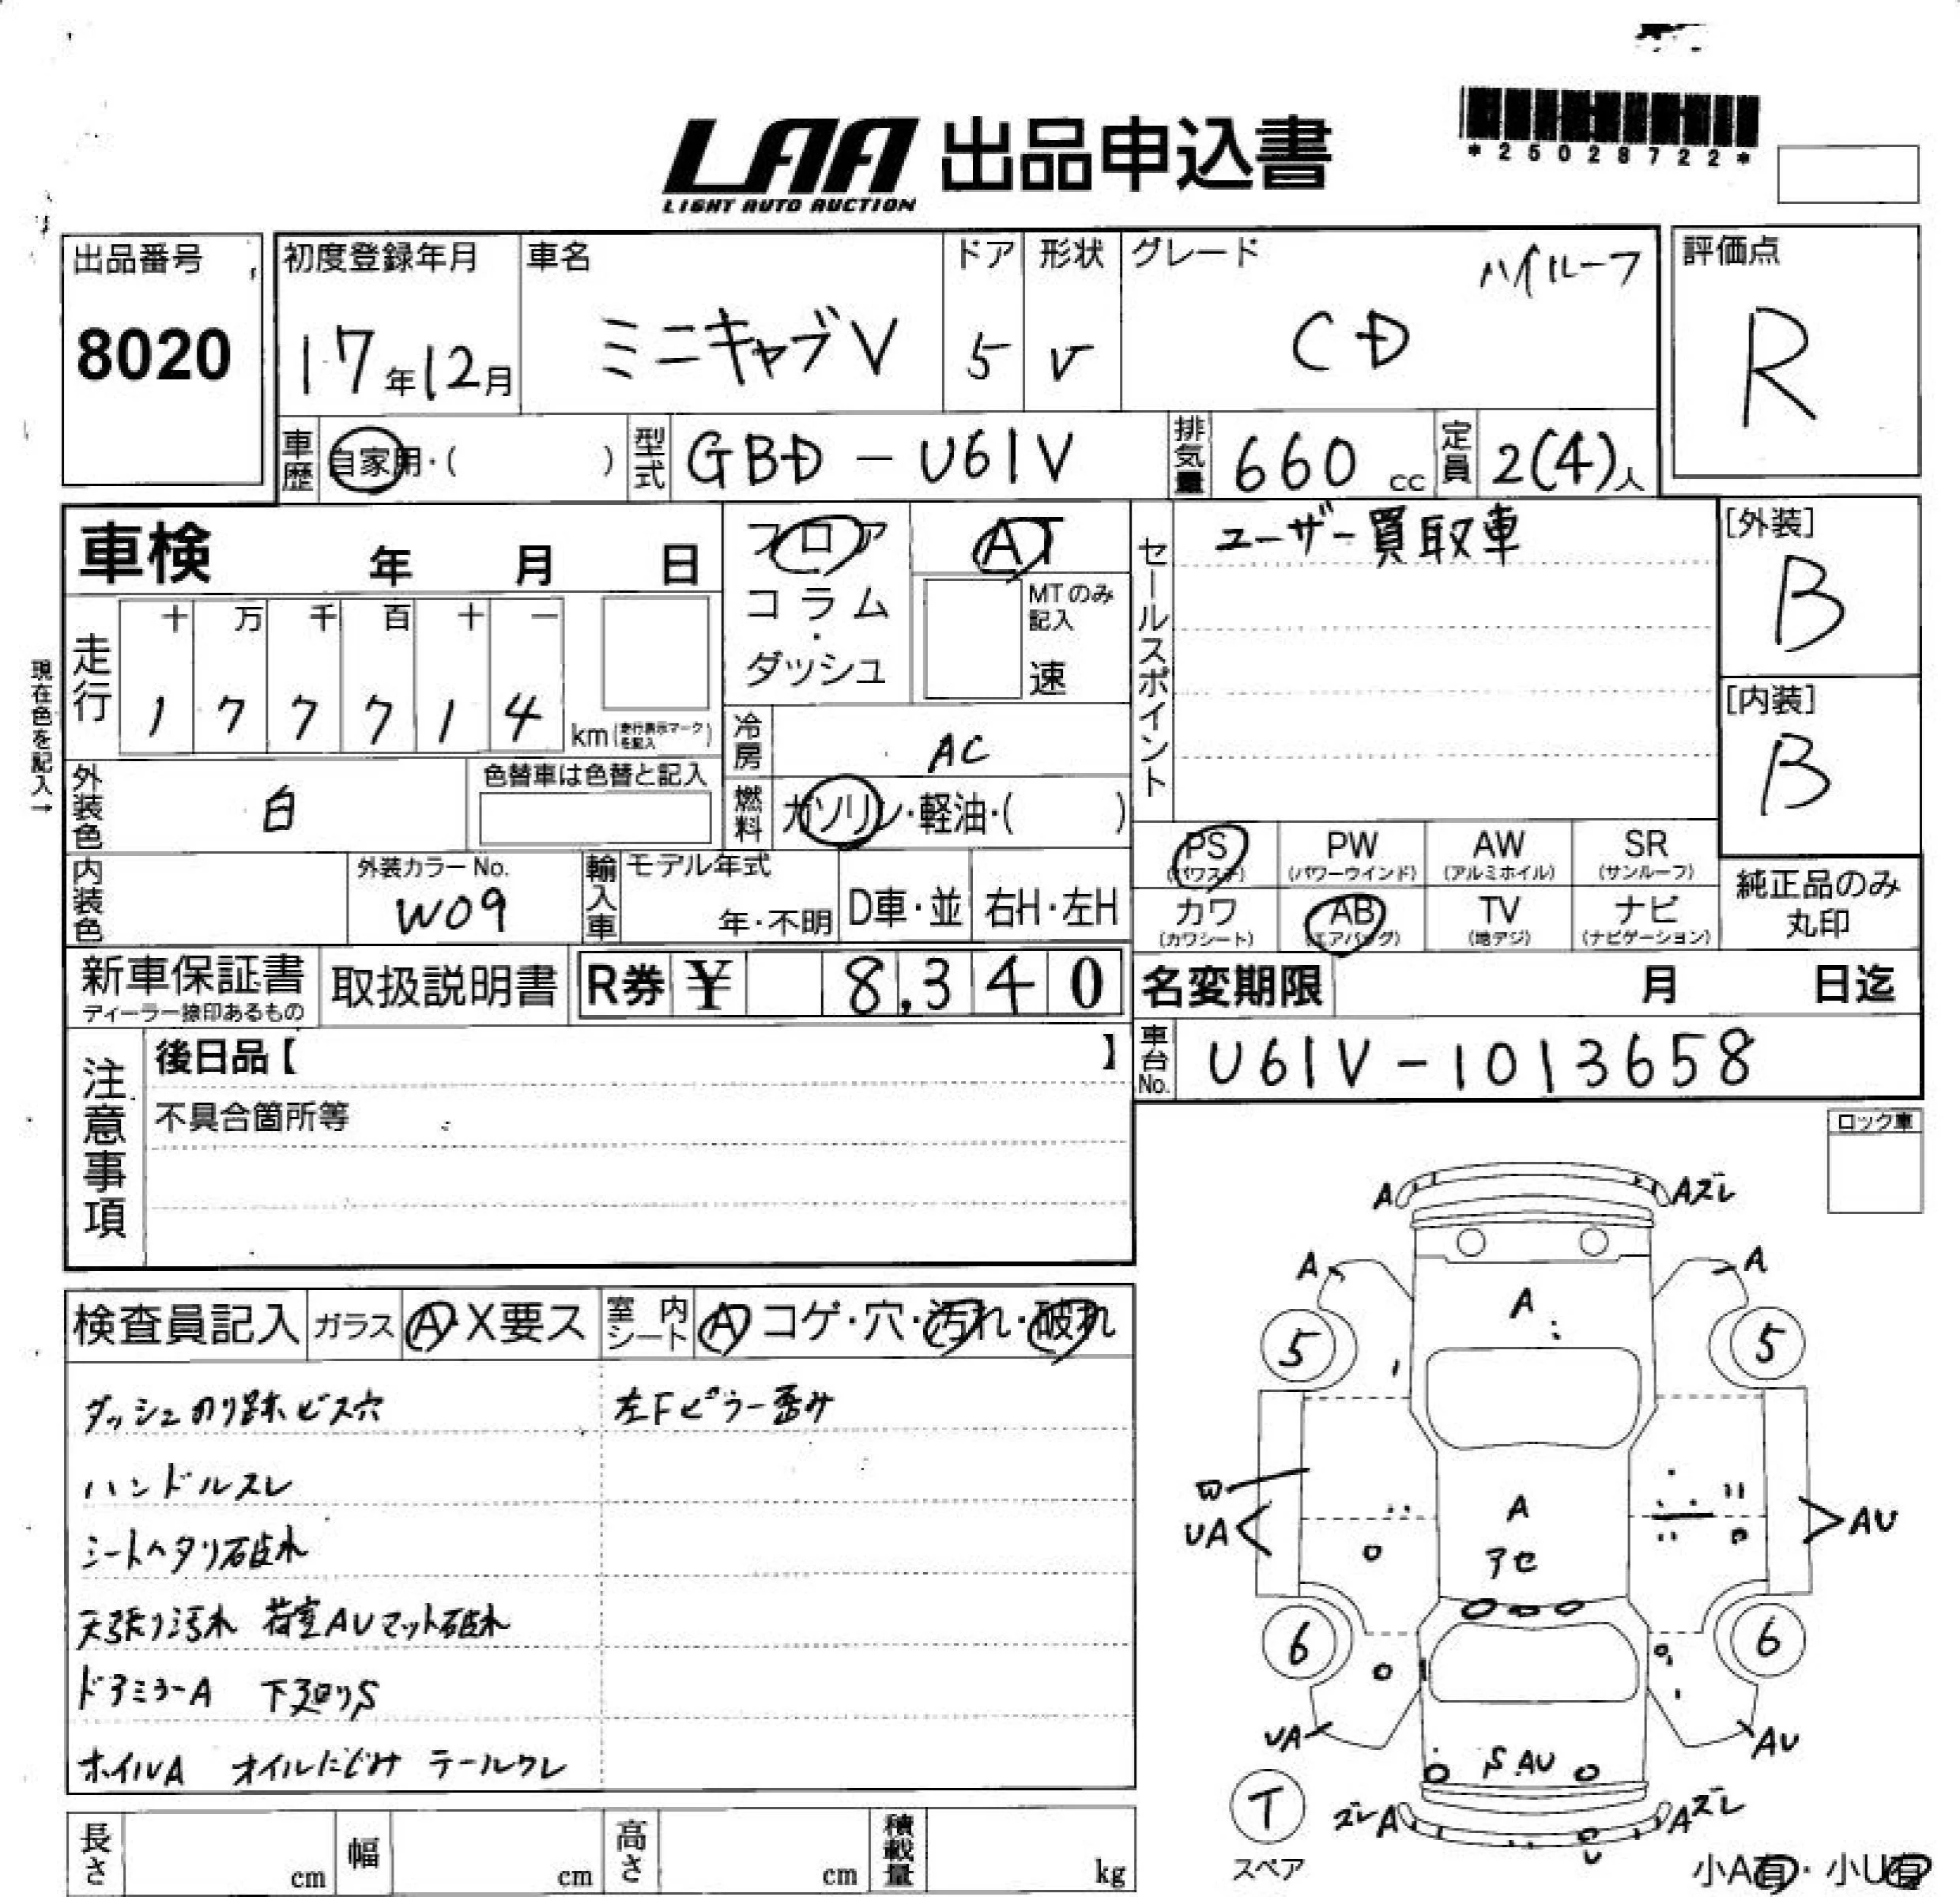 LAA 出品申込書
LIGHT AUTO AUCTION
*25028722*
出品番号
8020
初度登録年月
17年12月
車名
ミニキャブV
ドア
5
形状
V
グレード
ハイルーフ
CD
評価点
R
車歴
自家用・( )
型式
GBD-U61V
排気量
660 cc
定員
2(4)人
車検 年 月 日
走行
十 万 千 百 十 一
1 7 7 7 1 4
km(走行表示マークを記入)
現在色を記入→
フロア
コラム
・
ダッシュ
AT
MTのみ
記入
速
冷房
AC
燃料
ガソリン・軽油・( )
セールスポイント
ユーザー買取車
[外装]
B
[内装]
B
外装色
白
色替車は色替と記入
内装色
外装カラーNo.
W09
輸入車
モデル年式
年・不明
D車・並
右H・左H
PS
(パワステ)
PW
(パワーウインド)
AW
(アルミホイル)
SR
(サンルーフ)
カワ
(カワシート)
AB
(エアバッグ)
TV
(地デジ)
ナビ
(ナビゲーション)
純正品のみ
丸印
新車保証書
ディーラー捺印あるもの
取扱説明書
R券 ¥ 8,340
名変期限 月 日迄
車台No.
U61V-1013658
注意事項
後日品【 】
不具合箇所等
ロック車
検査員記入
ガラス
A・X要ス
室内
シート
A コゲ・穴・汚れ・破れ
ダッシュのり跡ビス穴
左Fピラー歪み
ハンドルスレ
シートヘタリ破れ
天張り汚れ 荷室AUマット破れ
ドアミラーA 下廻りS
ホイルA オイルにじみ テールワレ
A
Aズレ
A
A
A
5
5
UA
A
AU
アセ
6
6
UA
S AU
AU
T
スペア
ズレA
Aズレ
小A有・小U有
長さ cm
幅 cm
高さ cm
積載量 kg